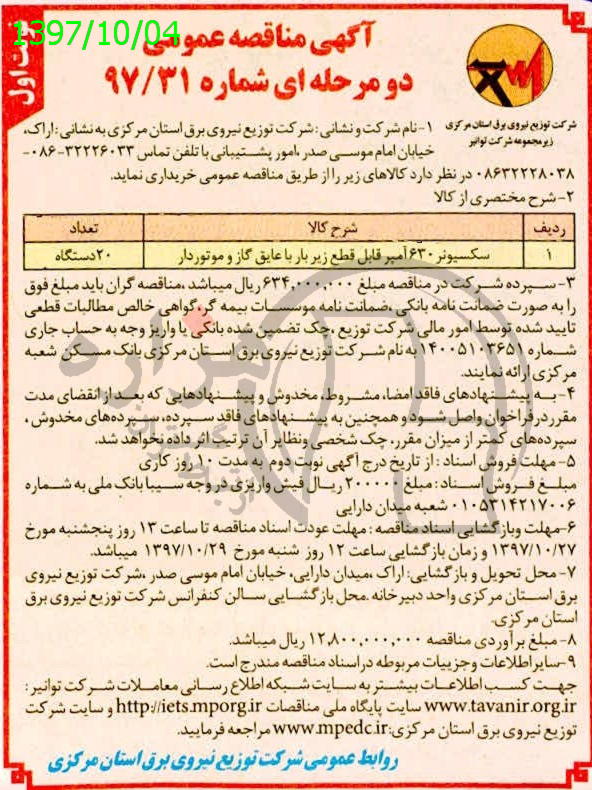 1397/10/04
نوبت اول
آگهی مناقصه عمومی
دو مرحله ای شماره ۹۷/۳۱
شرکت توزیع نیروی برق استان مرکزی
زیرمجموعه شرکت توانیر
۱- نام شرکت و نشانی: شرکت توزیع نیروی برق استان مرکزی به نشانی: اراک،
خیابان امام موسی صدر ،امور پشتیبانی با تلفن تماس ۳۲۲۲۶۰۳۳-۰۸۶-
۰۸۶۳۲۲۲۸۰۳۸ در نظر دارد کالاهای زیر را از طریق مناقصه عمومی خریداری نماید.
۲- شرح مختصری از کالا
ردیف شرح کالا تعداد
۱ سکسیونر ۶۳۰ آمپر قابل قطع زیر بار با عایق گاز و موتوردار ۲۰دستگاه
۳- سپرده شرکت در مناقصه مبلغ ۶۳۴,۰۰۰,۰۰۰ ریال میباشد ،مناقصه گران باید مبلغ فوق
را به صورت ضمانت نامه بانکی ،ضمانت نامه موسسات بیمه گر،گواهی خالص مطالبات قطعی
تایید شده توسط امور مالی شرکت توزیع ،چک تضمین شده بانکی یا واریز وجه به حساب جاری
شماره ۱۴۰۰۵۱۰۳۶۵۱ به نام شرکت توزیع نیروی برق استان مرکزی بانک مسکن شعبه
مرکزی ارائه نمایند.
۴- به پیشنهادهای فاقد امضا، مشروط، مخدوش و پیشنهادهایی که بعد از انقضای مدت
مقرر در فراخوان واصل شود و همچنین به پیشنهادهای فاقد سپرده، سپرده‌های مخدوش ،
سپرده‌های کمتر از میزان مقرر، چک شخصی ونظایر آن ترتیب اثر داده نخواهد شد.
۵- مهلت فروش اسناد : از تاریخ درج آگهی نوبت دوم به مدت ۱۰ روز کاری
مبلغ فروش اسناد : مبلغ ۲۰۰۰۰۰ ریال فیش واریزی در وجه سیبا بانک ملی به شماره
۰۱۰۵۳۱۴۲۱۷۰۰۶ شعبه میدان دارایی
۶-مهلت وبازگشایی اسناد مناقصه : مهلت عودت اسناد مناقصه تا ساعت ۱۳ روز پنجشنبه مورخ
۱۳۹۷/۱۰/۲۷ و زمان بازگشایی ساعت ۱۲ روز شنبه مورخ ۱۳۹۷/۱۰/۲۹ میباشد.
۷- محل تحویل و بازگشایی: اراک ،میدان دارایی، خیابان امام موسی صدر ،شرکت توزیع نیروی
برق استان مرکزی واحد دبیرخانه .محل بازگشایی سالن کنفرانس شرکت توزیع نیروی برق
استان مرکزی.
۸- مبلغ برآوردی مناقصه ۱۲,۸۰۰,۰۰۰,۰۰۰ ریال میباشد.
۹-سایر اطلاعات وجزییات مربوطه دراسناد مناقصه مندرج است.
جهت کسب اطلاعات بیشتر به سایت شبکه اطلاع رسانی معاملات شرکت توانیر:
www.tavanir.org.ir سایت پایگاه ملی مناقصات http://iets.mporg.ir و سایت شرکت
توزیع نیروی برق استان مرکزی:www.mpedc.ir مراجعه فرمایید.
روابط عمومی شرکت توزیع نیروی برق استان مرکزی